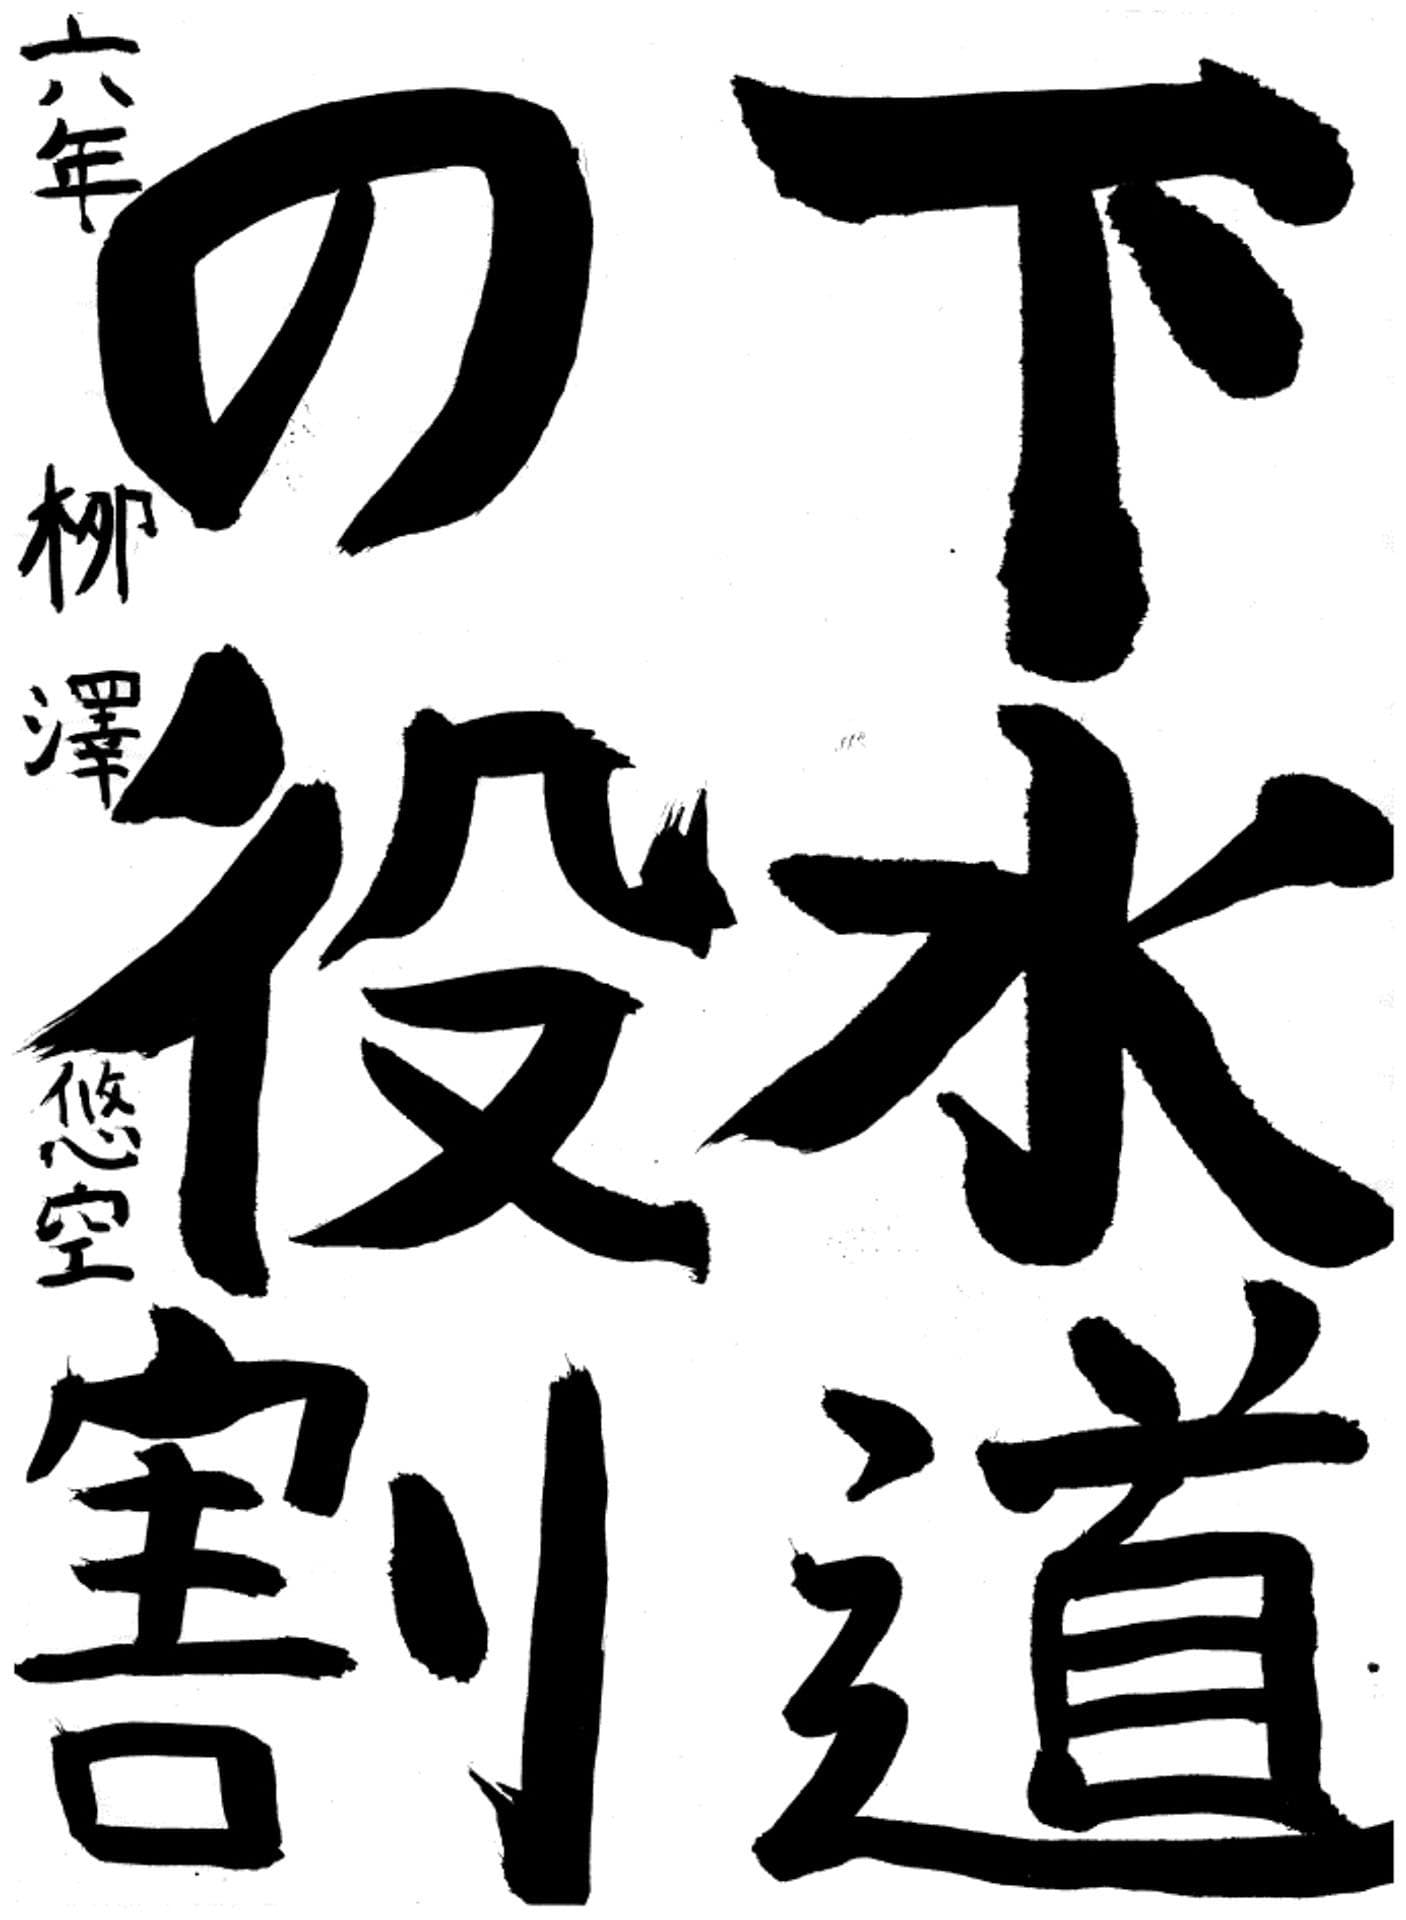 下水道
の役割
六年 柳澤悠空